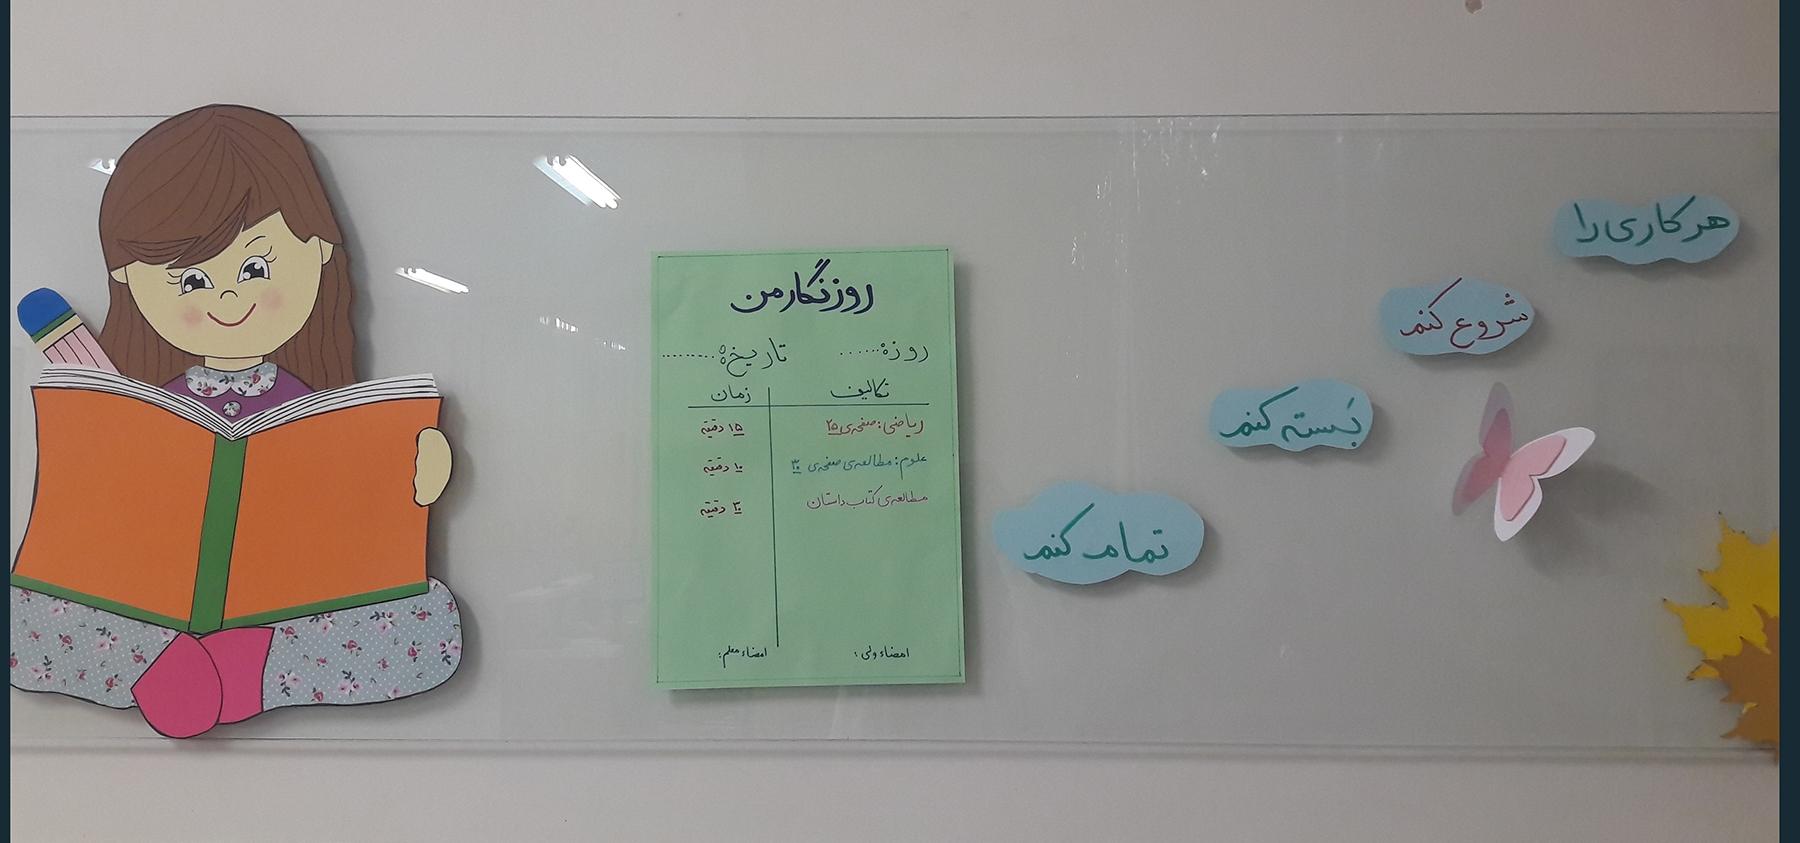 هر کاری را
شروع کنم
بَسته کنم
تمام کنم
روزنگار من
روز: ...... تاریخ: ........
تکالیف زمان
ریاضی: صفحه‌ی ۲۵ ۱۵ دقیقه
علوم: مطالعه‌ی صفحه‌ی ۳۰ ۱۰ دقیقه
مطالعه‌ی کتاب داستان ۳۰ دقیقه
امضاء ولی: امضاء معلم: